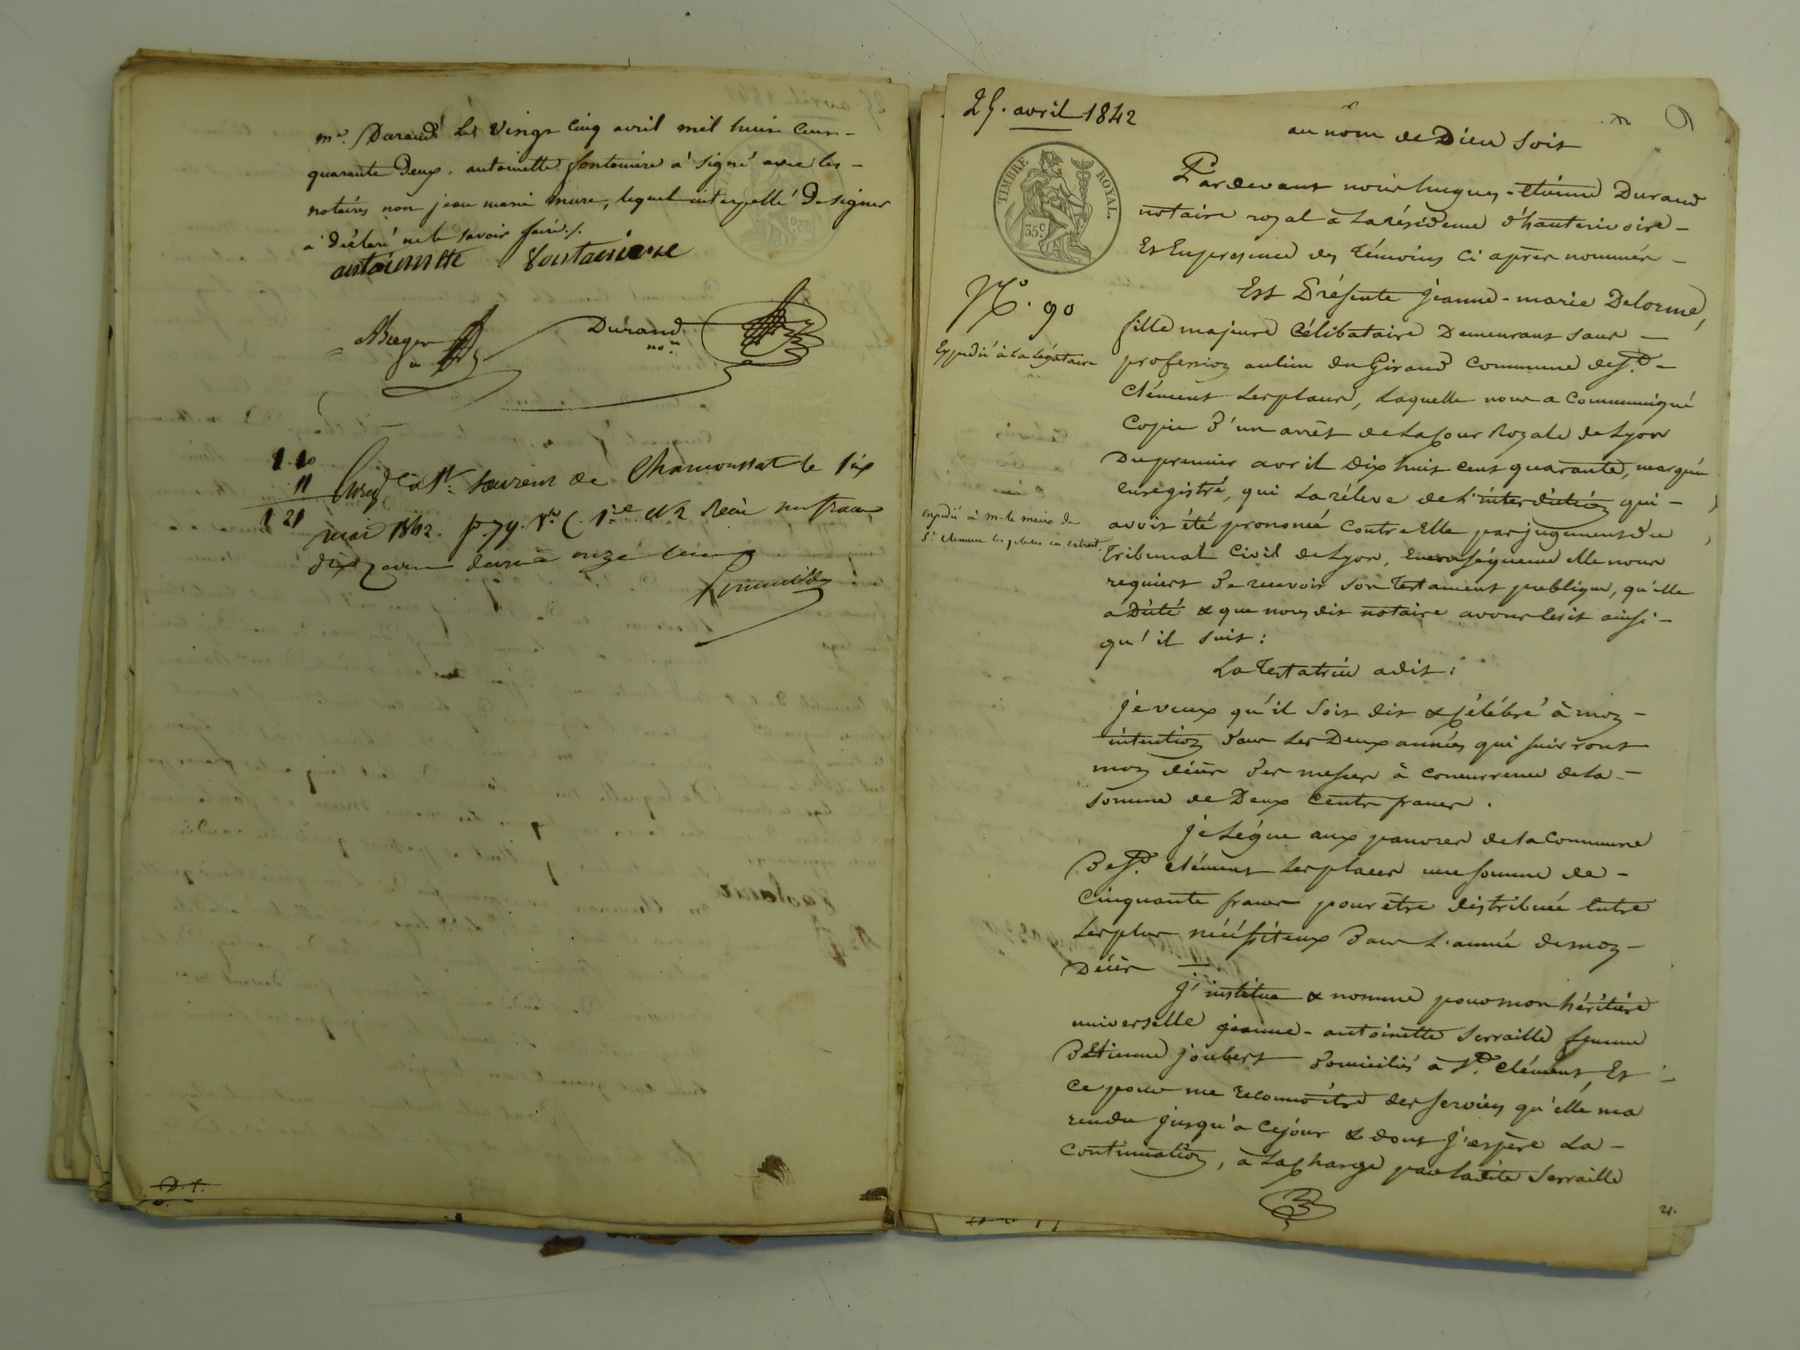 me. Durand Les vingt cinq avril mil huit cent -
quarante Deux. antoinette fontanière a signé avec les -
notaires non jean marie mure, lequel interpellé De signer
a déclaré ne le savoir faire ./.
antoinette fontanierse
Durand
no.re
1.10
11
1 21
Enreg. à St. Laurent de Chamousset le six
mai 1842. fo. 79. Vo. C. 1.re et 2 Reçu un franc
dix cent. decime onze cent.
25. avril 1842
au nom de Dieu soit
TIMBRE ROYAL.
35c.
Pardevant nous hugues-étienne Durand
notaire royal à La résidence d'hauterivoire -
Et En presence des témoins Ci après nommés -
No. 90
Est Présente jeanne-marie Delorme,
fille majeure Célibataire Demeurant sans -
Expédié à La légataire
profession au lieu du Giraud Commune de St. -
Clément Les places, Laquelle nous a Communiqué
Copie d'un arrêt de La Cour Royale de Lyon
Du premier avril Dix huit cent quarante, marqué
enregistré, qui La réleve de L'interdiction qui -
expédié à m. le maire de
St clément les places en extrait.
avoit été prononcé Contre Elle par jugement du
Tribunal Civil de Lyon, En conséquence elle nous
requiert de recevoir son testament publique, qu'elle
a Dicté & que nous dit notaire avons Ecrit ainsi -
qu'il suit :
La Testatrice a dit :
je veux qu'il soit dit & célébré à mon -
intention dans Les Deux années qui suivront
mon décès des messes à concurrence de La -
somme de Deux Cents francs.
je Lègue aux pauvres de La Commune
De St. clément Les places une somme de -
Cinquante francs pour être distribuée Entre
Les plus nécessiteux dans L'année de mon -
Décès -
j'institue & nomme pour mon héritière
universelle jeanne-antoinette Serraille femme
D'Etienne joubert domiciliés à St. clément, Et -
Ce pour me reconnoître des services qu'elle m'a
rendu jusqu'à Cejour & dont j'espère La -
Continuation, à La charge par Ladite Serraille